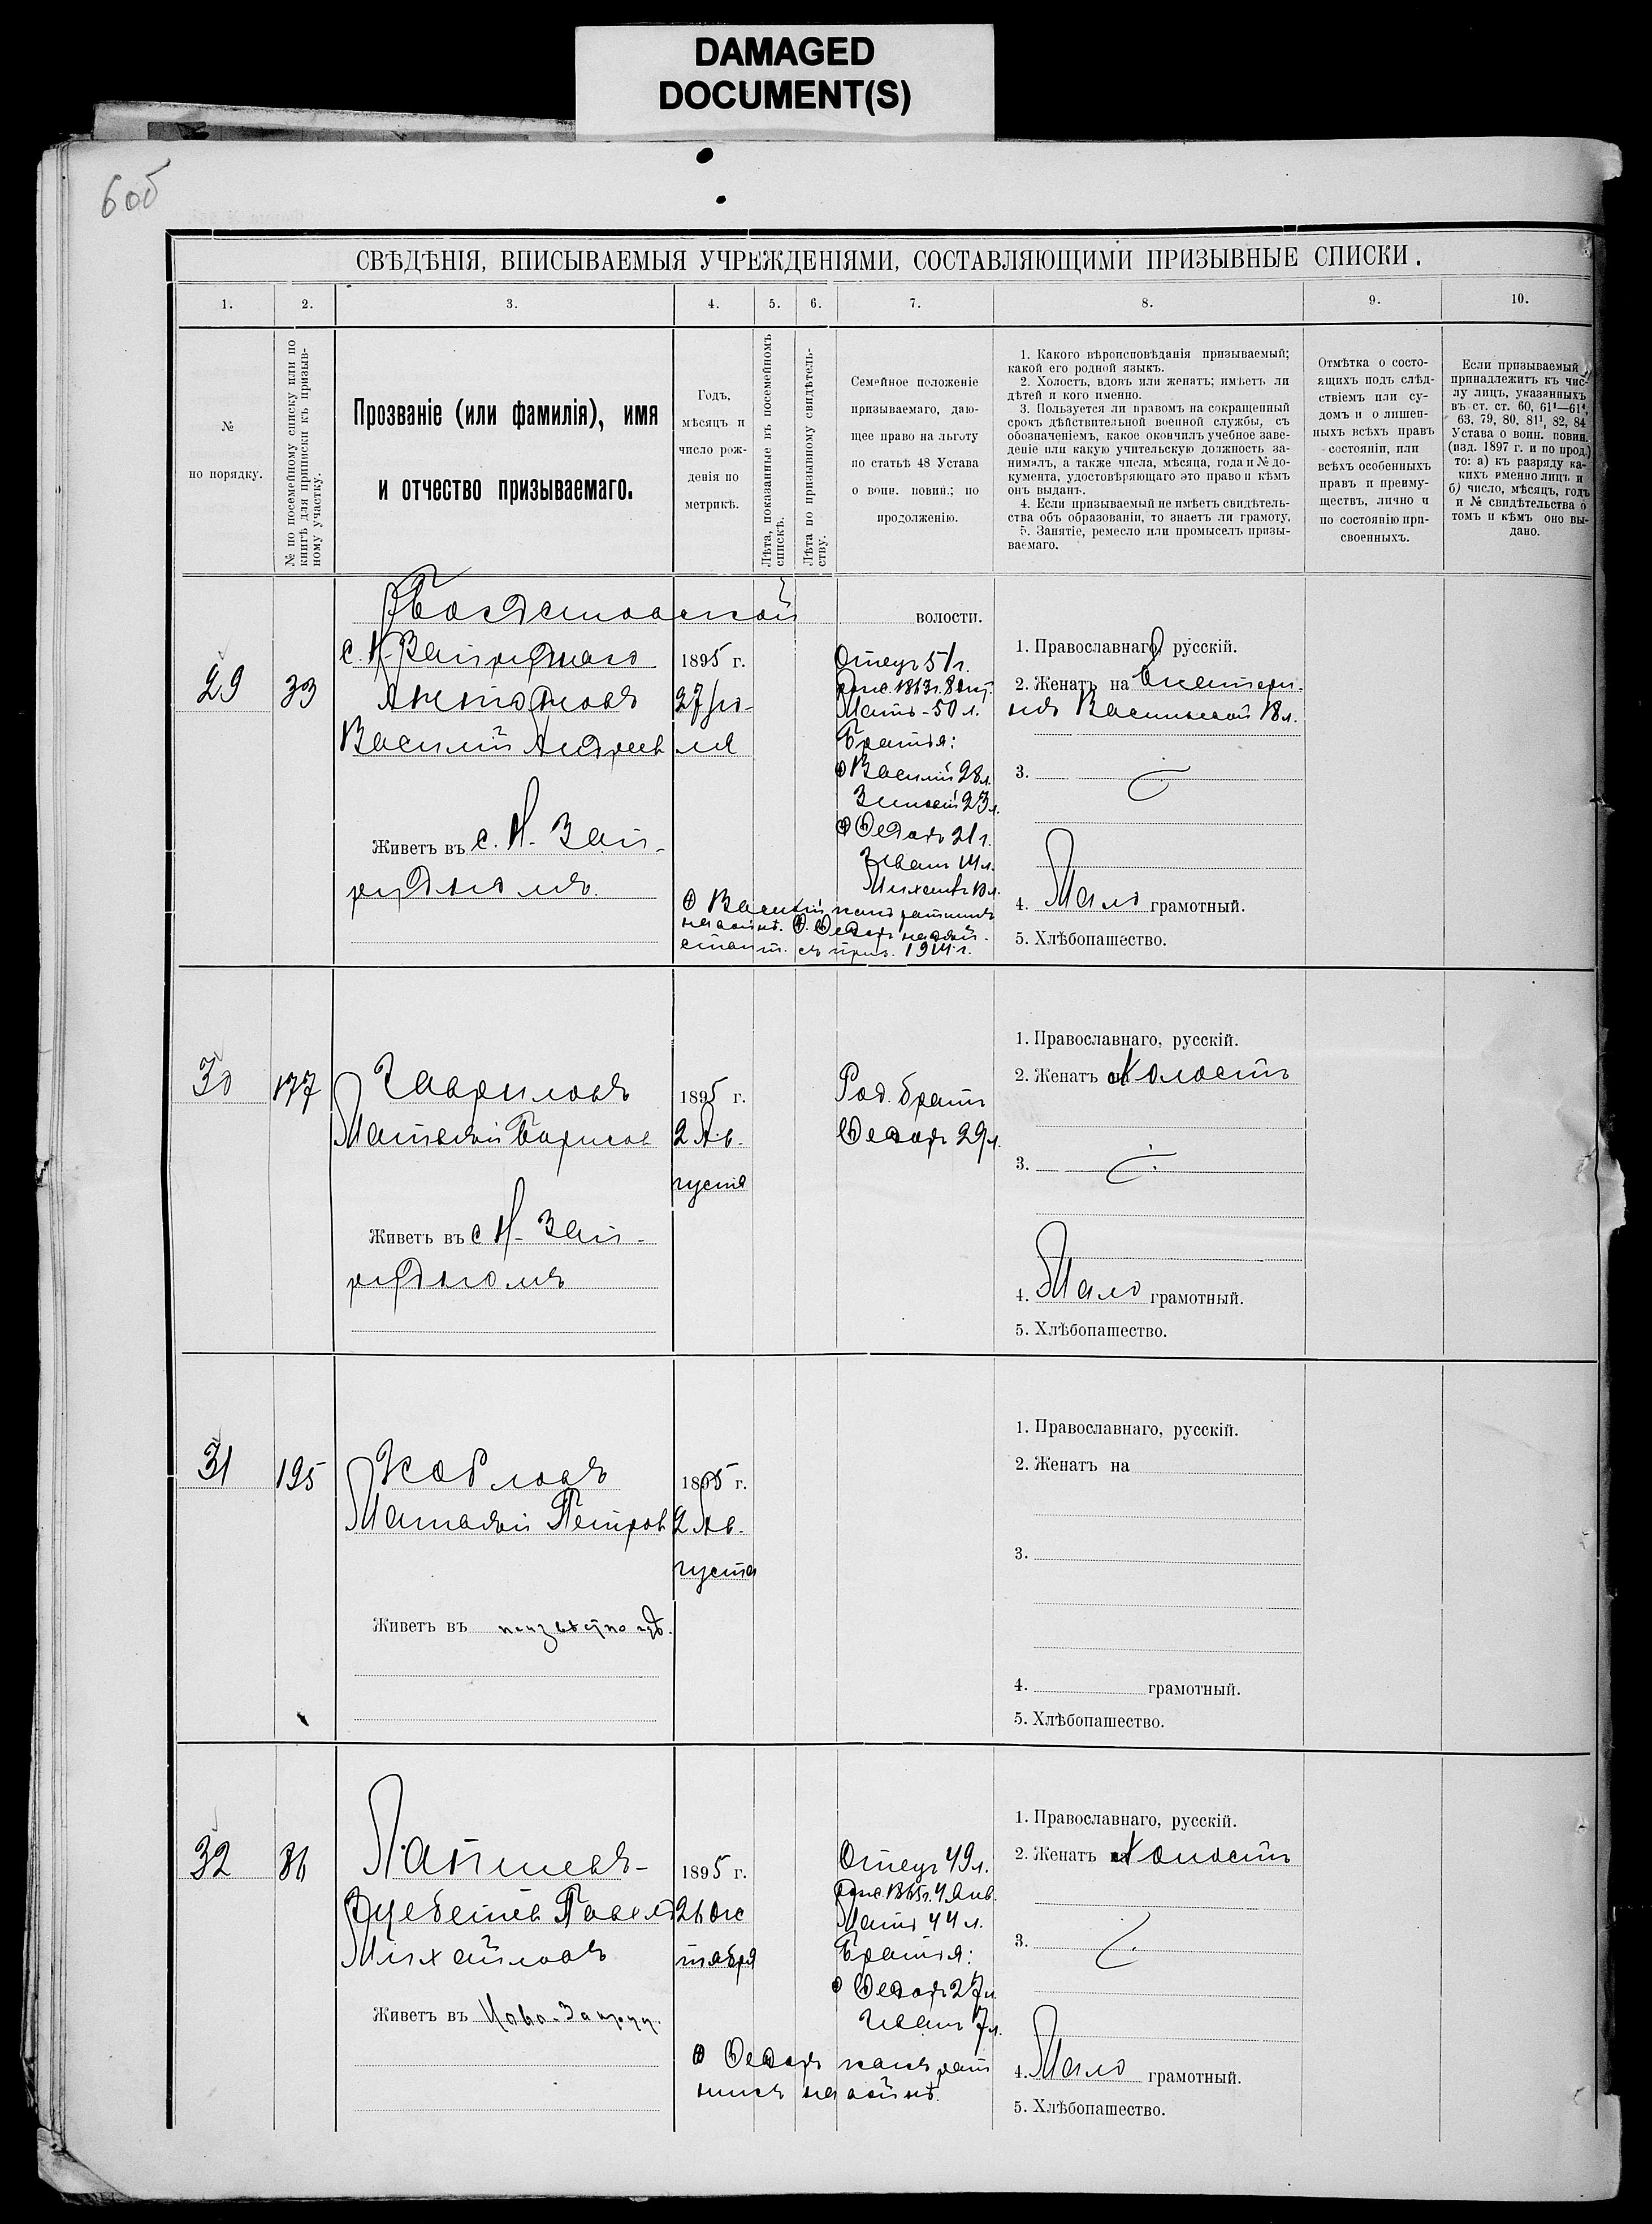 DAMAGED
DOCUMENT(S)
6об
СВѢДѢНІЯ, ВПИСЫВАЕМЫЯ УЧРЕЖДЕНІЯМИ, СОСТАВЛЯЮЩИМИ ПРИЗЫВНЫЕ СПИСКИ.
1. 2. 3. 4. 5. 6. 7. 8. 9. 10.
№
по порядку.
№ по посемейному списку или по
книгѣ для приписки къ призыв-
ному участку.
Прозваніе (или фамилія), имя
и отчество призываемаго.
Годъ,
мѣсяцъ и
число рож-
денія по
метрикѣ.
Лѣта, показанные въ посемейномъ
спискѣ.
Лѣта по призывному свидѣтель-
ству.
Семейное положеніе
призываемаго, даю-
щее право на льготу
по статьѣ 48 Устава
о воин. повин.; по
продолженію.
1. Какого вѣроисповѣданія призываемый;
какой его родной языкъ.
2. Холостъ, вдовъ или женатъ; имѣетъ ли
дѣтей и кого именно.
3. Пользуется ли правомъ на сокращенный
срокъ дѣйствительной военной службы, съ
обозначеніемъ, какое окончилъ учебное заве-
деніе или какую учительскую должность за-
нималъ, а также числа, мѣсяца, года и № до-
кумента, удостовѣряющаго это право и кѣмъ
онъ выданъ.
4. Если призываемый не имѣетъ свидѣтель-
ства объ образованіи, то знаетъ ли грамоту.
5. Занятіе, ремесло или промыселъ призы-
ваемаго.
Отмѣтка о состо-
ящихъ подъ слѣд-
ствіемъ или су-
домъ и о лишен-
ныхъ всѣхъ правъ
состоянія, или
всѣхъ особенныхъ
правъ и преиму-
ществъ, лично и
по состоянію при-
своенныхъ.
Если призываемый
принадлежитъ къ чис-
лу лицъ, указанныхъ
въ ст. ст. 60, 61¹—61⁴,
63, 79, 80, 81¹, 82, 84
Устава о воин. повин.
(изд. 1897 г. и по прод.)
то: а) къ разряду ка-
кихъ именно лицъ и
б) число, мѣсяцъ, годъ
и № свидѣтельства о
томъ и кѣмъ оно вы-
дано.
волости.
29
33
Василій Андреев
Живетъ въ с. Н-Зап-
рудномъ.
1895 г.
27 Ію-
ля
Отецъ 51 г.
Мать - 50 л.
Братья:
Василій 28 л.
Зиновій 23 л.
Ѳедоръ 21 г.
Иванъ 14 л.
Василій какъ ратникъ
на войнѣ. Ѳедоръ на дѣй-
1. Православнаго, русскій.
2. Женатъ на Екатери-
нѣ Васильевой 18 л.
3.
4. Мало грамотный.
5. Хлѣбопашество.
30
177
Гавриловъ
Матвѣй Борисов
Живетъ въ с Н-Зап-
руд­номъ
1895 г.
2 Ав-
густа
Род. братъ
Ѳедоръ 29 л.
1. Православнаго, русскій.
2. Женатъ на Холостъ
3.
4. Мало грамотный.
5. Хлѣбопашество.
31
195
Козловъ
Матвѣй Петров
Живетъ въ неизвѣстно гдѣ.
1895 г.
2 Ав-
густа
1. Православнаго, русскій.
2. Женатъ на
3.
4. грамотный.
5. Хлѣбопашество.
32
86
Лаптевъ-
Павелъ
Михайловъ
Живетъ въ Ново-Запруд.
1895 г.
26 Ок
тября
Отецъ 49 л.
Мать 44 л.
Братья:
Ѳедоръ 27 л.
Иванъ 7 л.
Ѳедоръ какъ рат
никъ на войнѣ.
1. Православнаго, русскій.
2. Женатъ на Холостъ
3.
4. Мало грамотный.
5. Хлѣбопашество.